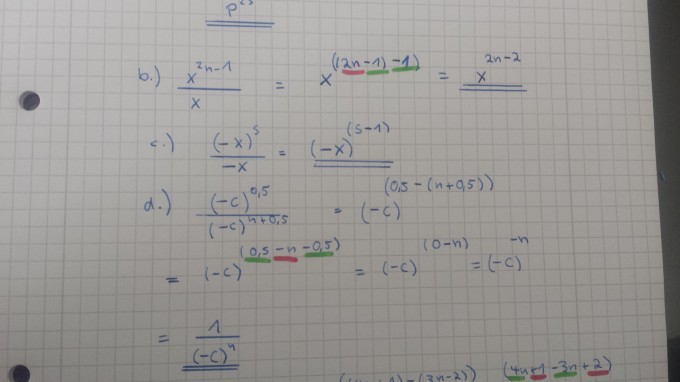 p²⁵
b.) x^(2n-1) / x = x^((2n-1)-1) = x^(2n-2)
c.) (-x)^s / -x = (-x)^(s-1)
d.) (-c)^0,5 / (-c)^(n+0,5) = (-c)^(0,5-(n+0,5))
= (-c)^(0,5-n-0,5) = (-c)^(0-n) = (-c)^-n
= 1 / (-c)^n
-(3n-2)) (4n+1-3n+2)